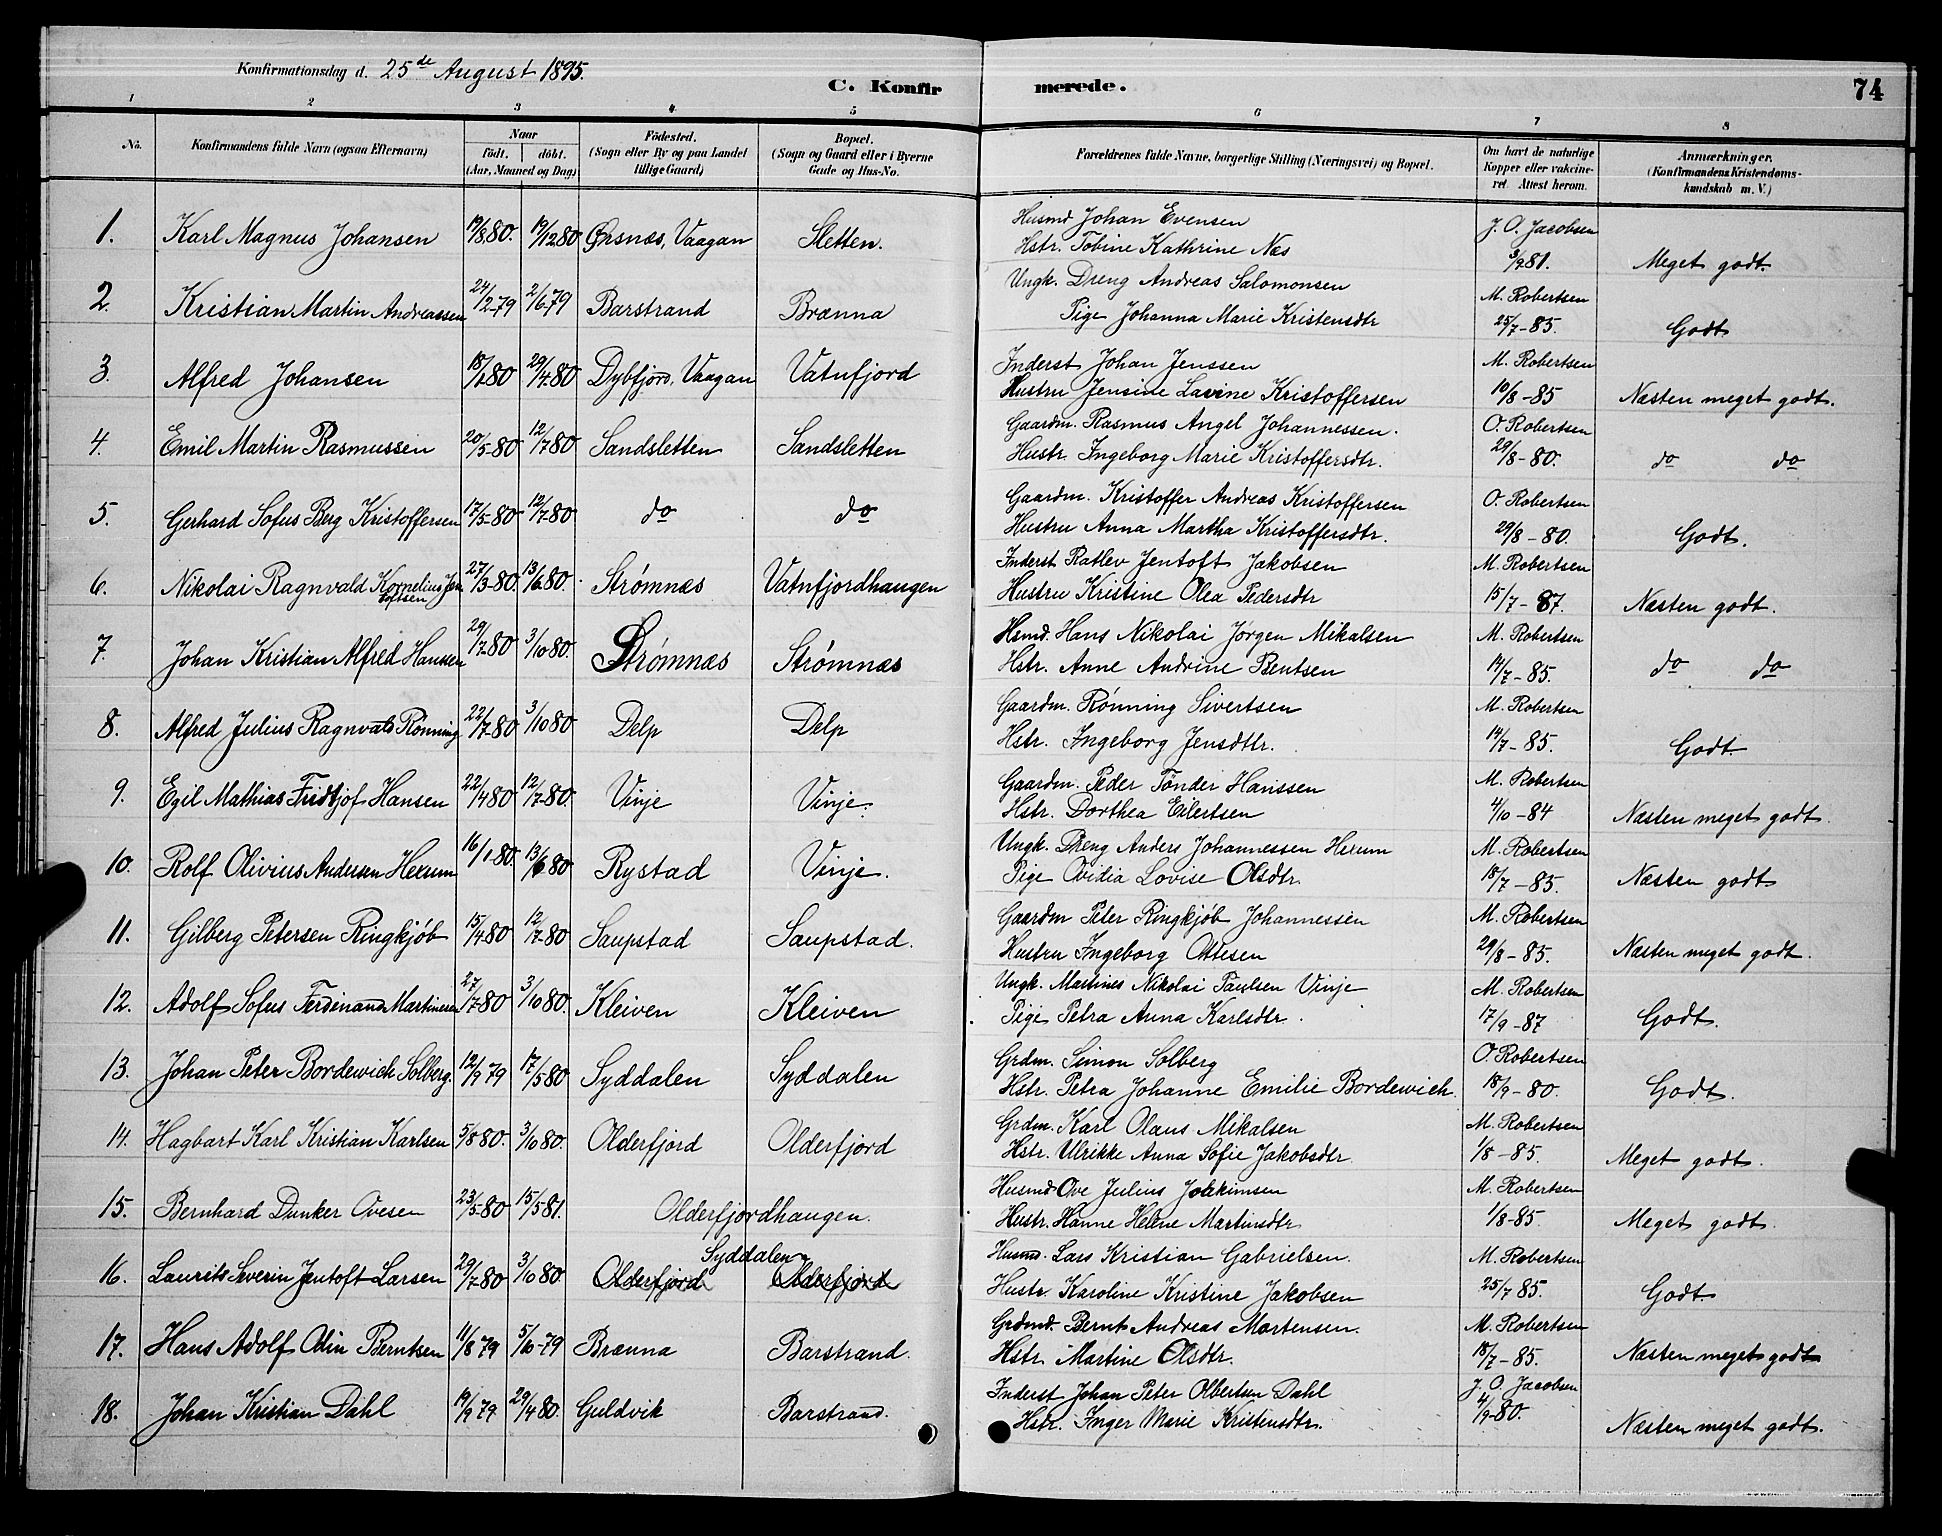 Konfirmationsdag d. 25de August 1895.
C. Konfir
merede.
74
1 2 3 4 5 6 7 8
No.
Konfirmandens fulde Navn (ogsaa Efternavn)
Naar
födt. döbt.
(Aar, Maaned og Dag)
Födested.
(Sogn eller By og paa Landet
tillige Gaard)
Bopæl.
(Sogn og Gaard eller i Byerne
Gade og Hus-No.
Forældrenes fulde Navne, borgerlige Stilling (Næringsvei) og Bopæl.
Om havt de naturlige
Kopper eller vakcine-
ret. Attest herom.
Anmærkninger.
(Konfirmandens Kristendoms-
kundskab m. V.)
1. Karl Magnus Johansen 19/8 80. 19/12 80 Ørsnæs, Vaagan Sletten.
Husmd Johan Evensen J. O. Jacobsen
Hstr. Tobine Kathrine Næs 3/9 81. Meget godt.
2. Kristian Martin Andreassen 24/2-79 2/6-79 Barstrand Brænna
Ungk. Dreng Andreas Salomonsen M. Robertsen
Pige Johanna Marie Kristensdtr 25/7-85. Godt
3. Alfred Johansen 18/1 80 29/4-80 Dybfjord, Vaagan Vatnfjord
Inderst Johan Jenssen M. Robertsen
Hustru Jensine Lavine Kristoffersen 10/8-85 Næsten meget godt.
4. Emil Martin Rasmussen 20/5-80 12/7 80 Sandsletten Sandsletten
Gaardm. Rasmus Angel Johannessen. O. Robertsen
Hustr. Ingeborg Marie Kristoffersdtr. 29/8-80. do do
5. Gerhard Sofus Berg Kristoffersen 17/5-80 12/7-80 do do
Gaardm. Kristoffer Andreas Kristoffersen O. Robertsen
Hustru Anna Martha Kristoffersdtr. 29/8-80. Godt.
6. Nikolai Ragnvald Kornelius Jen
toftsen 27/3-80. 13/6 80. Strømnæs Vatnfjordhaugen
Inderst Ratlev Jentoft Jakobsen M. Robertsen
Hustru Kristine Olea Pedersdtr 15/7-87. Næsten godt.
7. Johan Kristian Alfred Hanssen 29/7-80 3/10 80. Strømnæs Strømnæs
Hsmd. Hans Nikolai Jørgen Mikalsen M. Robertsen
Hstr. Anne Andrine Bentsen 14/7-85. do do
8. Alfred Julius Ragnvald Rönning 22/7-80 3/10 80 Delp Delp
Gaardm. Rönning Sivertsen M. Robertsen
Hstr. Ingeborg Jensdttr. 14/7-85. Godt.
9. Egil Mathias Fridtjof Hansen 22/4 80 12/7-80. Vinje Vinje.
Gaardm. Peder Tönder Hanssen M. Robertsen
Hstr. Dorthea Eilertsen 4/10-84 Næsten meget godt.
10. Rolf Olivius Andersen Hexum 16/1-80. 13/6 80 Rystad Vinje.
Ungk. Dreng Anders Johannessen Hexum M. Robertsen
Pige Ovidia Lovise Olsdtr. 18/7-85. Næsten godt
11. Gilberg Petersen Ringkjöb 15/4-80 12/7-80 Saupstad Saupstad.
Gaardm Peter Ringkjöb Johannessen M. Robertsen
Hustru Ingeborg Ottesen 29/8-85. Næsten meget godt.
12. Adolf Sofus Ferdinand Martinesen 27/7-80 3/10 80. Kleiven Kleiven
Ungk. Martines Nikolai Paulsen Vinje M. Robertsen
Pige Petra Anna Karlsdtr. 17/9-87 Godt.
13. Johan Peter Bordewich Solberg. 12/9 79 17/5 80 Syddalen Syddalen
Grdm. Simon Solberg O. Robertsen
Hstr. Petra Johanne Emilie Bordewich. 18/9-80. Godt.
14. Hagbart Karl Kristian Karlsen 5/8 80. 3/10 80. Olderfjord Olderfjord
Grdm. Karl Olaus Mikalsen M. Robertsen
Hstr. Ulrikke Anna Sofie Jakobsdtr. 1/8-85. Meget godt.
15. Bernhard Dunker Ovesen 23/5-80 15/5 81. Olderfjordhaugen.
Husmd Ove Julius Joakimsen M. Robertsen
Hustr. Hanne Helene Martinsdtr 1/8-85. Meget godt.
16. Laurits Severin Jentoft Larsen 29/7-80 3/10 80 Syddalen
Olderfjord Olderfjord
Husmd. Lars Kristian Gabrielsen. M. Robertsen
Hustr. Karoline Kristine Jakobsen 25/7 85. Godt.
17. Hans Adolf Odin Berntsen 11/8 79 5/10-79 Brænna Barstrand.
Grdmd. Bernt Andreas Mortensen. M. Robertsen
Hstr. Martine Olsdtr. 18/7-85. Næsten meget godt
18. Johan Kristian Dahl 19/9 79 29/4 80. Guldvik Barstrand.
Inderst Johan Peter Olbertsen Dahl J. O. Jacobsen
Hstr. Inger Marie Kristensdtr. 4/9-80. Næsten meget godt.